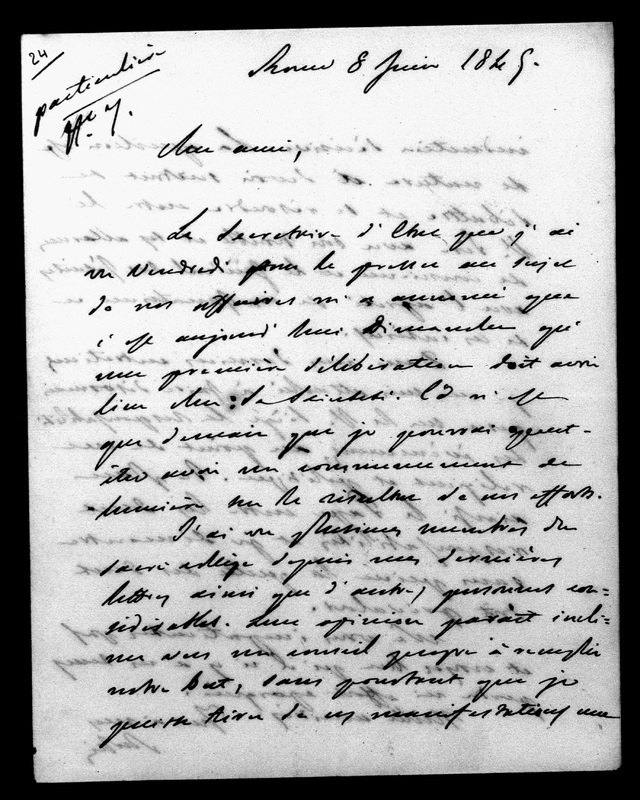 24
particulière
N° 7.
Rome 8 Juin 1845.
Mon ami,
Le Secrétaire d'Etat que j'ai
vu Vendredi pour le presser au sujet
de nos affaires m'a annoncé que
c'est aujourd'hui Dimanche qu'
une première délibération doit avoir
lieu chez Sa Sainteté. Ce n'est
que demain que je pourrai peut-
être avoir un commencement de
lumière sur le résultat de nos efforts.
J'ai vu plusieurs membres du
sacré collège depuis mes dernières
lettres ainsi que d'autres personnes con-
sidérables. Leur opinion parait incli-
ner vers un conseil propre à remplir
notre but, sans pourtant que je
puisse tirer de ces manifestations une